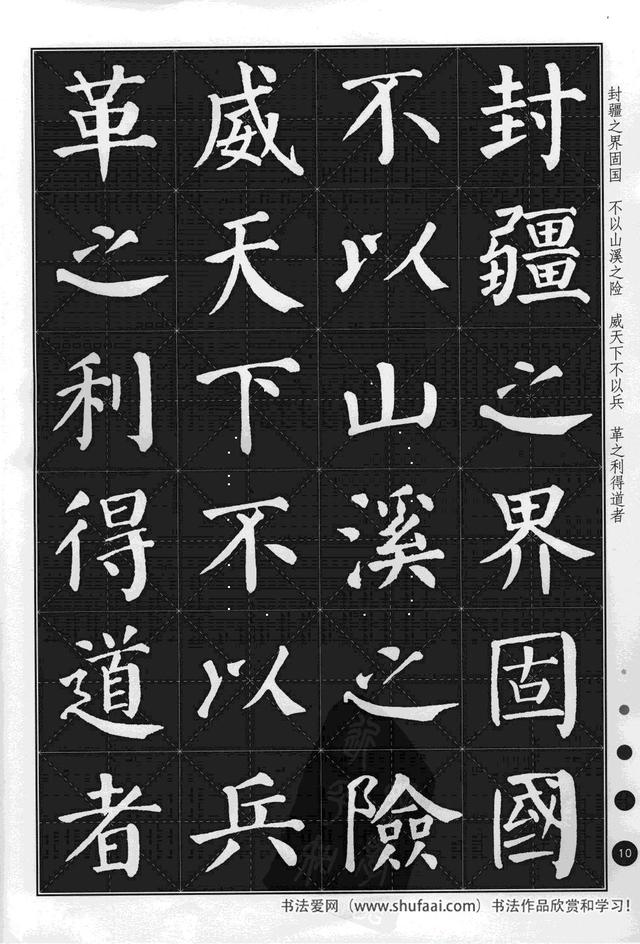 封疆之界固國
不以山溪之險
威天下不以兵
革之利得道者
封疆之界固国　不以山溪之险　威天下不以兵　革之利得道者
10
书法爱网（www.shufaai.com）书法作品欣赏和学习！